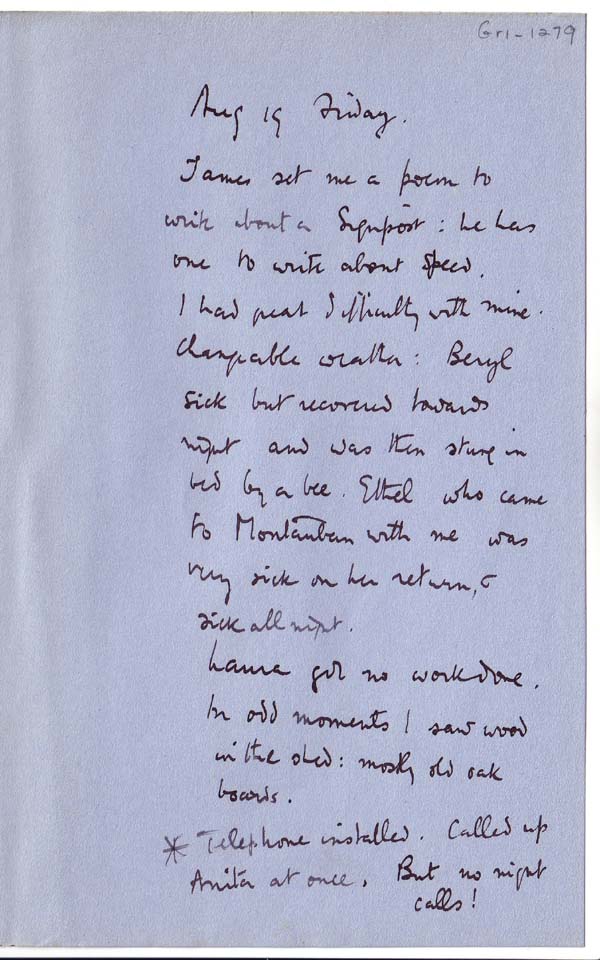 Gr1-1279
Aug 19 Friday.
James set me a poem to
write about a Signpost : he has
one to write about speed.
I had great difficulty with mine.
Changeable weather : Beryl
sick but recovered towards
night and was then stung in
bed by a bee. Ethel who came
to Montauban with me was
very sick on her return, &
sick all night.
Laura got no work done.
In odd moments I saw wood
in the shed : mostly old oak
boards.
* Telephone installed. Called up
Anita at once. But no night
calls!